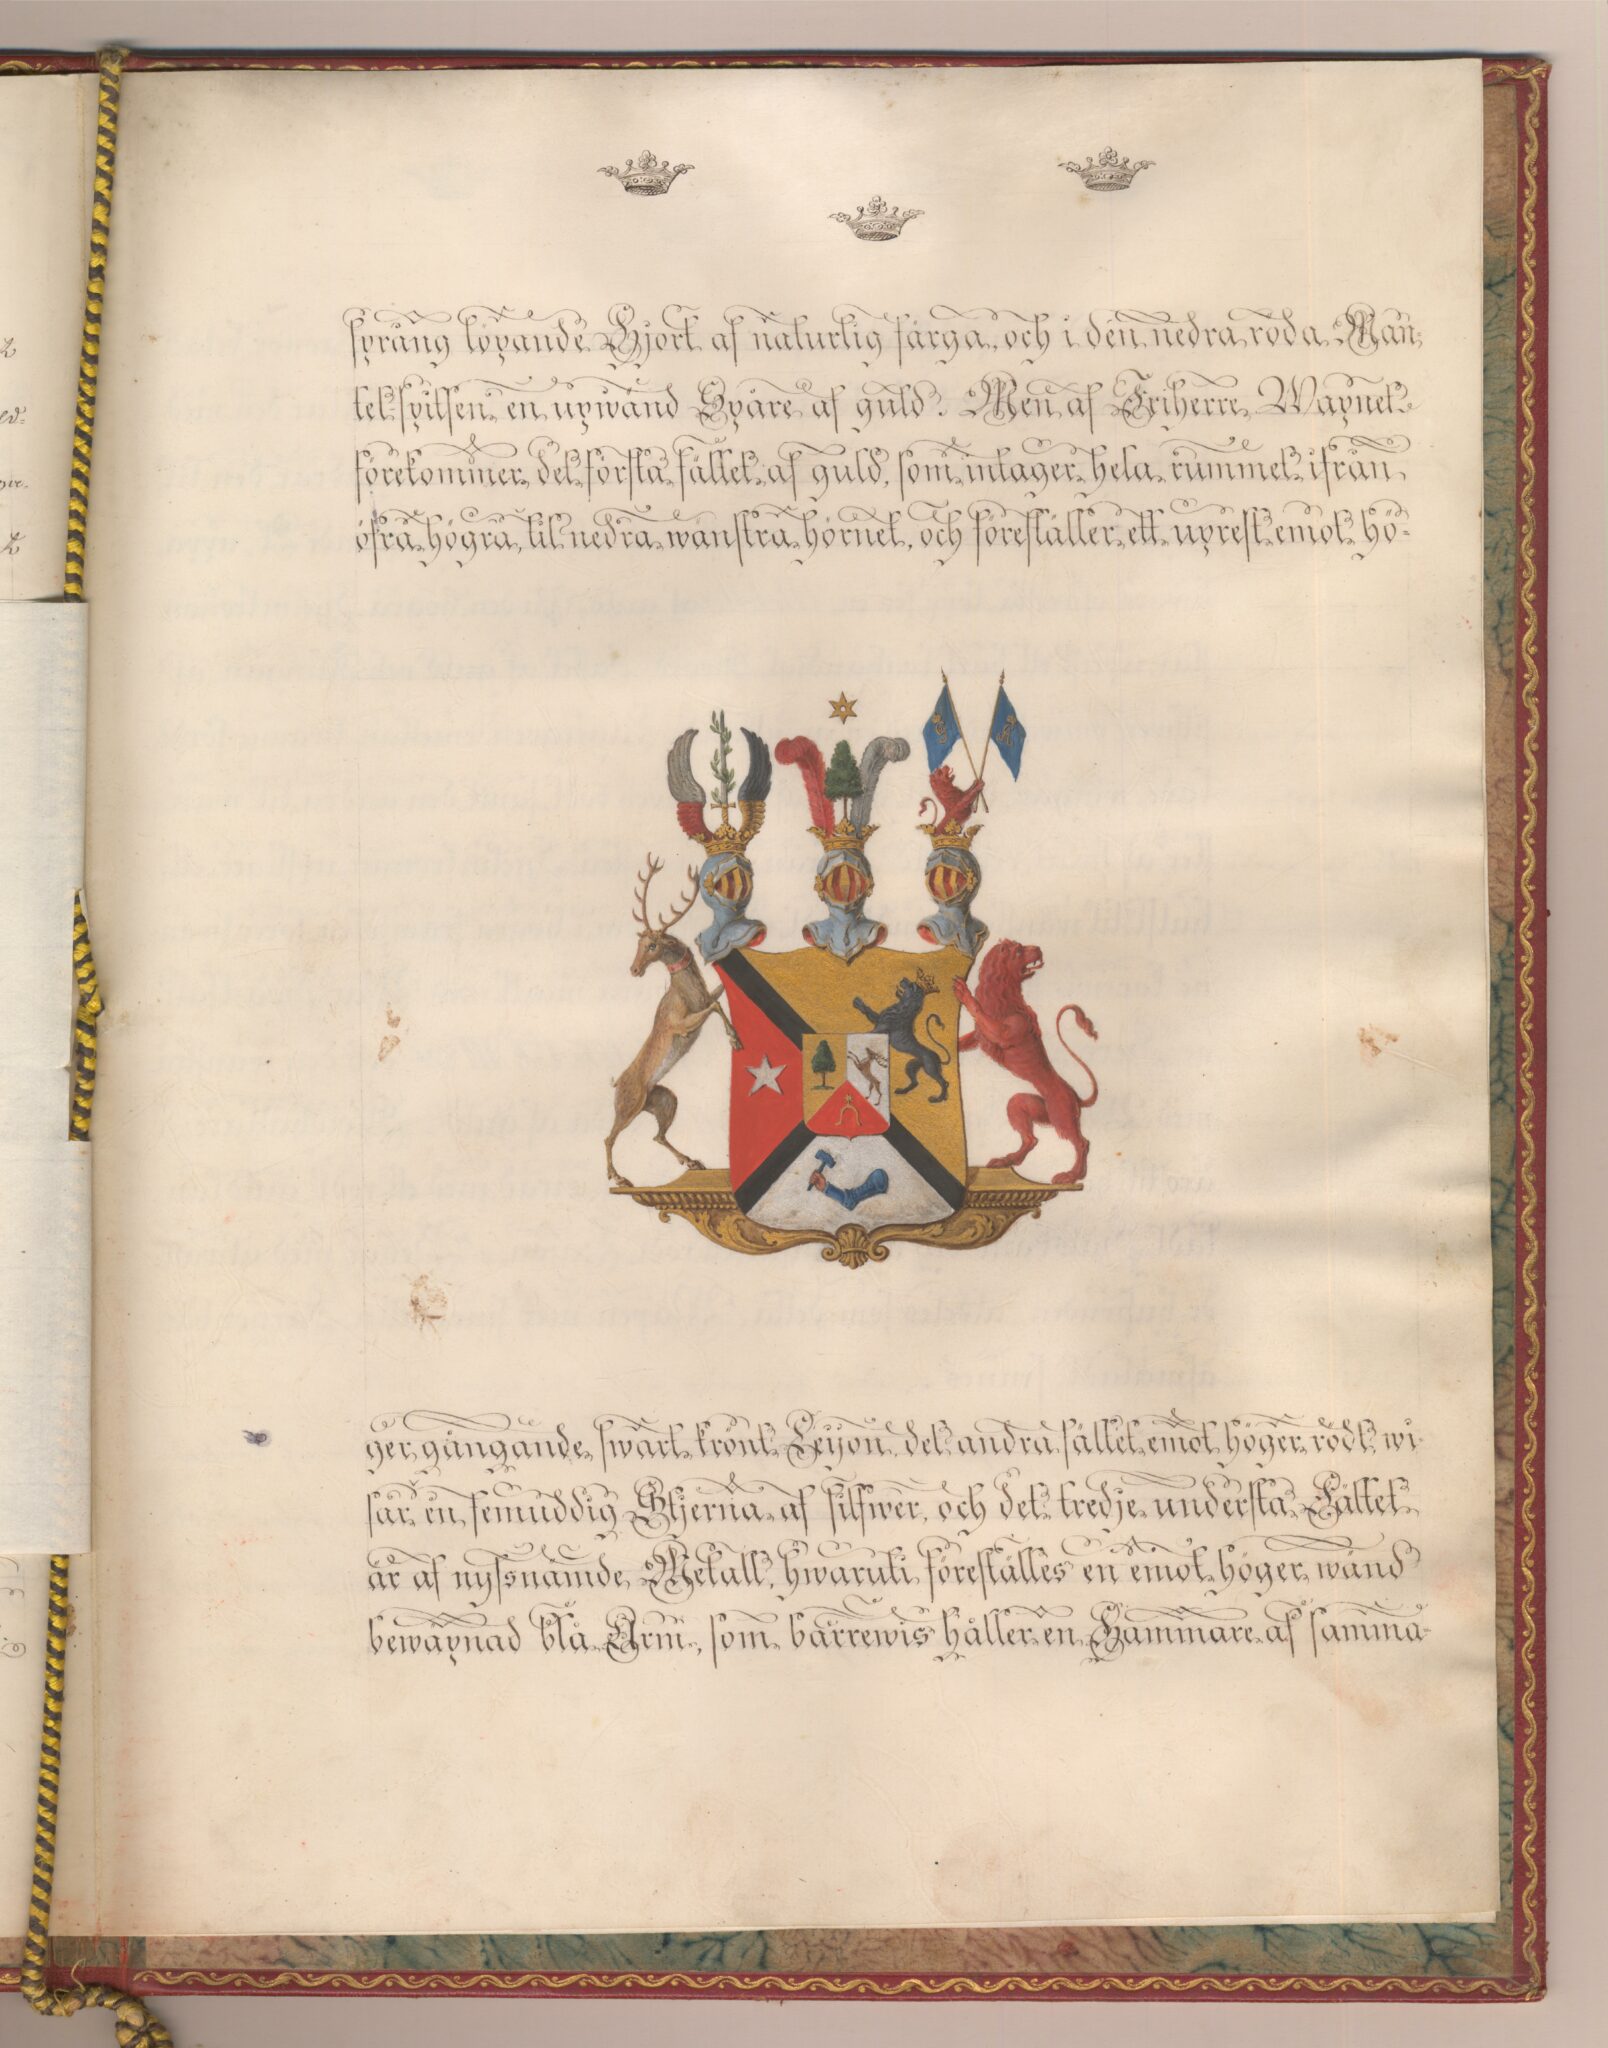 språng löpande Hjort af naturlig färga, och i den nedra röda Man-
tel-spitsen en upwänd Spare af guld. Men af Friherre Wapnet
förekommer det första fältet af guld, som intager hela rummet ifrån
öfra högra, til nedra wänstra hörnet, och föreställer ett uprest emot hö-
ger gångande swart krönt Leijon, det andra fältet emot höger rödt, wi-
sar en femuddig Stjerna af silfwer, och det tredje understa Fältet
är af nyssnämde Metall, hwaruti föreställes en emot höger wänd
bewäpnad blå Arm, som bärrewis håller en Hammare af samma